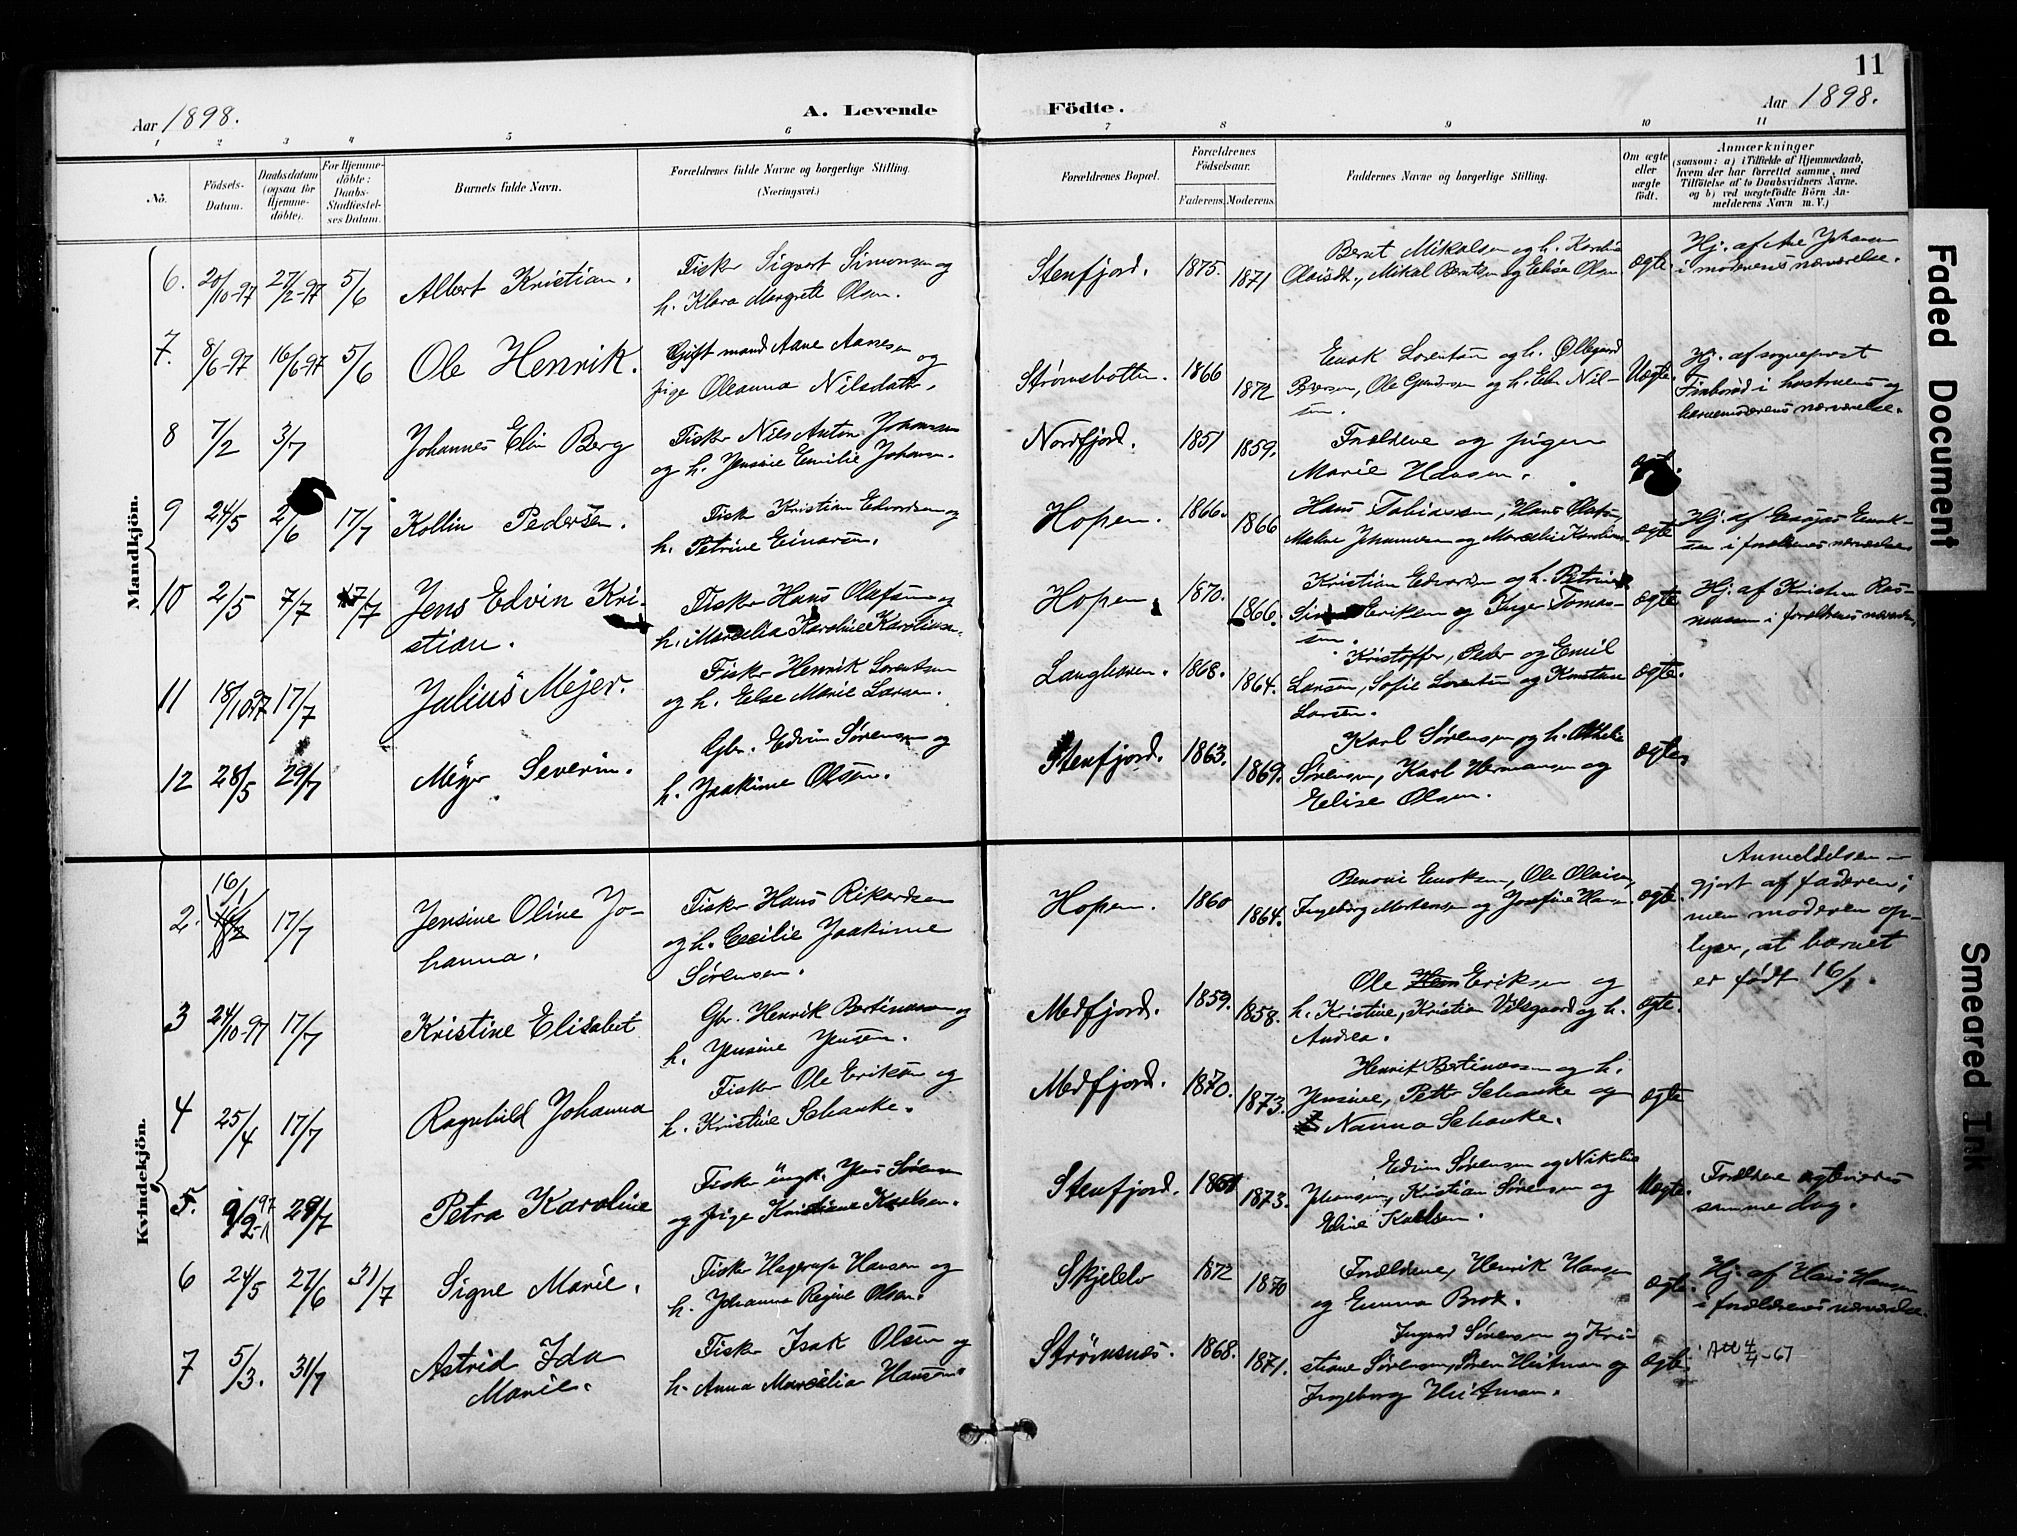 11
Aar 1898.
A. Levende
Födte.
Aar 1898.
1 2 3 4 5 6 7 8 9 10 11
No.
Födsels-
Datum.
Daabsdatum
(ogsaa for
Hjemme-
döbte).
For Hjemme-
döbte:
Daabs-
Stadfæstel-
ses Datum.
Barnets fulde Navn.
Forældrenes fulde Navne og borgerlige Stilling.
(Næringsvei.)
Forældrenes Bopæl.
Forældrenes
Födselsaar.
Faderens.
Moderens.
Faddernes Navne og borgerlige Stilling.
Om ægte
eller
uægte
födt.
Anmærkninger
(saasom: a) i Tilfælde af Hjemmedaab,
hvem der har forrettet samme, med
Tilföielse af to Daabsvidners Navne,
og b) ved uægtefödte Börn An-
melderens Navn m. V.)
Mandkjön.
6. 20/10-97 27/2-97 5/6 Albert Kristian.
Fisker Sigvart Simonsen og
h. Klara Margrete Olsen.
Stenfjord. 1875. 1871
Bernt Mikalsen og h.
Mikal Berntsen og Elise Olsen
ægte.
Hj. af Ane Johansen
i moderens nærværelse.
7. 8/6-97 16/6-97 5/6 Ole Henrik.
Gift mand Aane Aanesen og
pige Oleanna Nilsdatter.
Strømsbotten. 1866 1872
Enok Lorentsen og h. Ollegard
Ole og h. Elen Nil-
sen.
Uægte.
Hj. af sogneprest
i hustruens og
barnemoderens nærværelse.
8 7/2 3/7 Johannes Elin Berg
Fisker Nils Anton Johansen
og h. Jensine Emilie Johans.
Nordfjord. 1851 1859.
Forældrene og pigen
Marie Hansen.
9 24/5 2/6 17/7 Kollin Pedersen.
Fisk Kristian Edvardsen og
h. Petrine Einarsen.
Hopen. 1866. 1866
Hans Tobiassen, Hans Olafsen
og Marselie
ægte
Hj. af Esajas Enok-
sen i forældrenes nærværelse
10 2/5 7/7 17/7 Jens Edvin Kri-
stian.
Fisker Hans Olafsen og
h. Marselia Karoline
Hopen. 1870. 1866.
Kristian Edvardsen og h. Petrine
Eriksen og Inger Tomas-
sen.
ægte
Hj. af Kristen Ras-
mussen i forældrenes nærværelse.
11 18/10 97 17/7 Julius Mejer.
Fisker Henrik Lorentsen
og h. Else Marie Larsen.
1868. 1864.
Kristoffer, Peder og Emil
Larsen, Sofie Lorentsen og
Larsen.
ægte.
12 28/5 29/7 Mejer Severin.
Gbr. Edvin Sørensen og
h. Joakime Olsen.
Stenfjord. 1863. 1869.
Karl Sørensen og h.
Sørensen, Karl Hermansen og
Elise Olsen.
ægte.
Kvindekjön.
2. 16/1 17/7 Jensine Oline Jo-
hanna.
Fisker Hans Rikardsen
og h. Cecilie Joakime
Sørensen.
Hopen. 1860 1864.
Benoni Enoksen, Ole Olaisen,
Ingeborg Mortensen og Josefine Hansen
ægte.
Anmeldelsen
gjort af faderen;
men moderen op-
lyser, at barnet
er født 16/1.
3 24/10-97 17/7 Kristine Elisabet
Gbr. Henrik Bertinussen og
h. Jensine Jensen.
Medfjord. 1859. 1858.
Ole Eriksen og
h. Kristine, Kristian og h.
Andrea.
ægte.
4 25/4 17/7 Ragnhild Johanna
Fisker Ole Eriksen og
h. Kristine Schanke.
Medfjord. 1870. 1873.
Henrik Bertinussen og h.
Jensine, Petter Schanke og
Nanna Schanke.
ægte
5. 29/7 Petra Karoline
Fisker ungk. Jens Sørensen
og pige Kristiane Karlsen.
Stenfjord. 1873.
Edvin Sørensen og Nikolie
Johansen, Kristian Sørensen og
Edine Karlsen.
Uægte.
Forældrene ægteviedes
samme dag.
6 24/5 27/6 31/7 Signe Marie.
Fisker Hagerup Hansen og
h. Johanna Regine Olsen.
Skjelelv 1872 1870
Forældrene, Henrik Hansen
og Emma Brok.
ægte.
Hj. af Hans Hansen
i forældrenes nærværelse.
7 5/3. 31/7 Astrid Ida
Marie.
Fisker Isak Olsen og
h. Anna Marselia Hansen
Strømsnes. 1868. 1871.
Ingvard Sørensen og Kri-
stiane Sørensen, Søren Heitman og
Ingeborg Heitman.
ægte.
Att 4/4-67
Faded Document
Smeared Ink